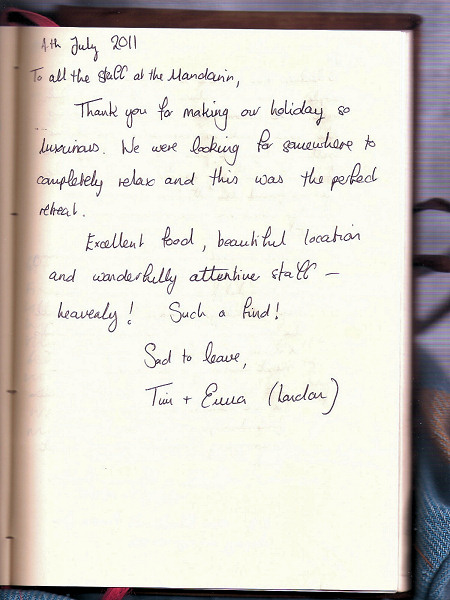 4th July 2011
To all the staff at the Mandarin,
Thank you for making our holiday so
luxurious. We were looking for somewhere to
completely relax and this was the perfect
retreat.
Excellent food, beautiful location
and wonderfully attentive staff –
heavenly! Such a find!
Sad to leave,
Tim + Emma (London)